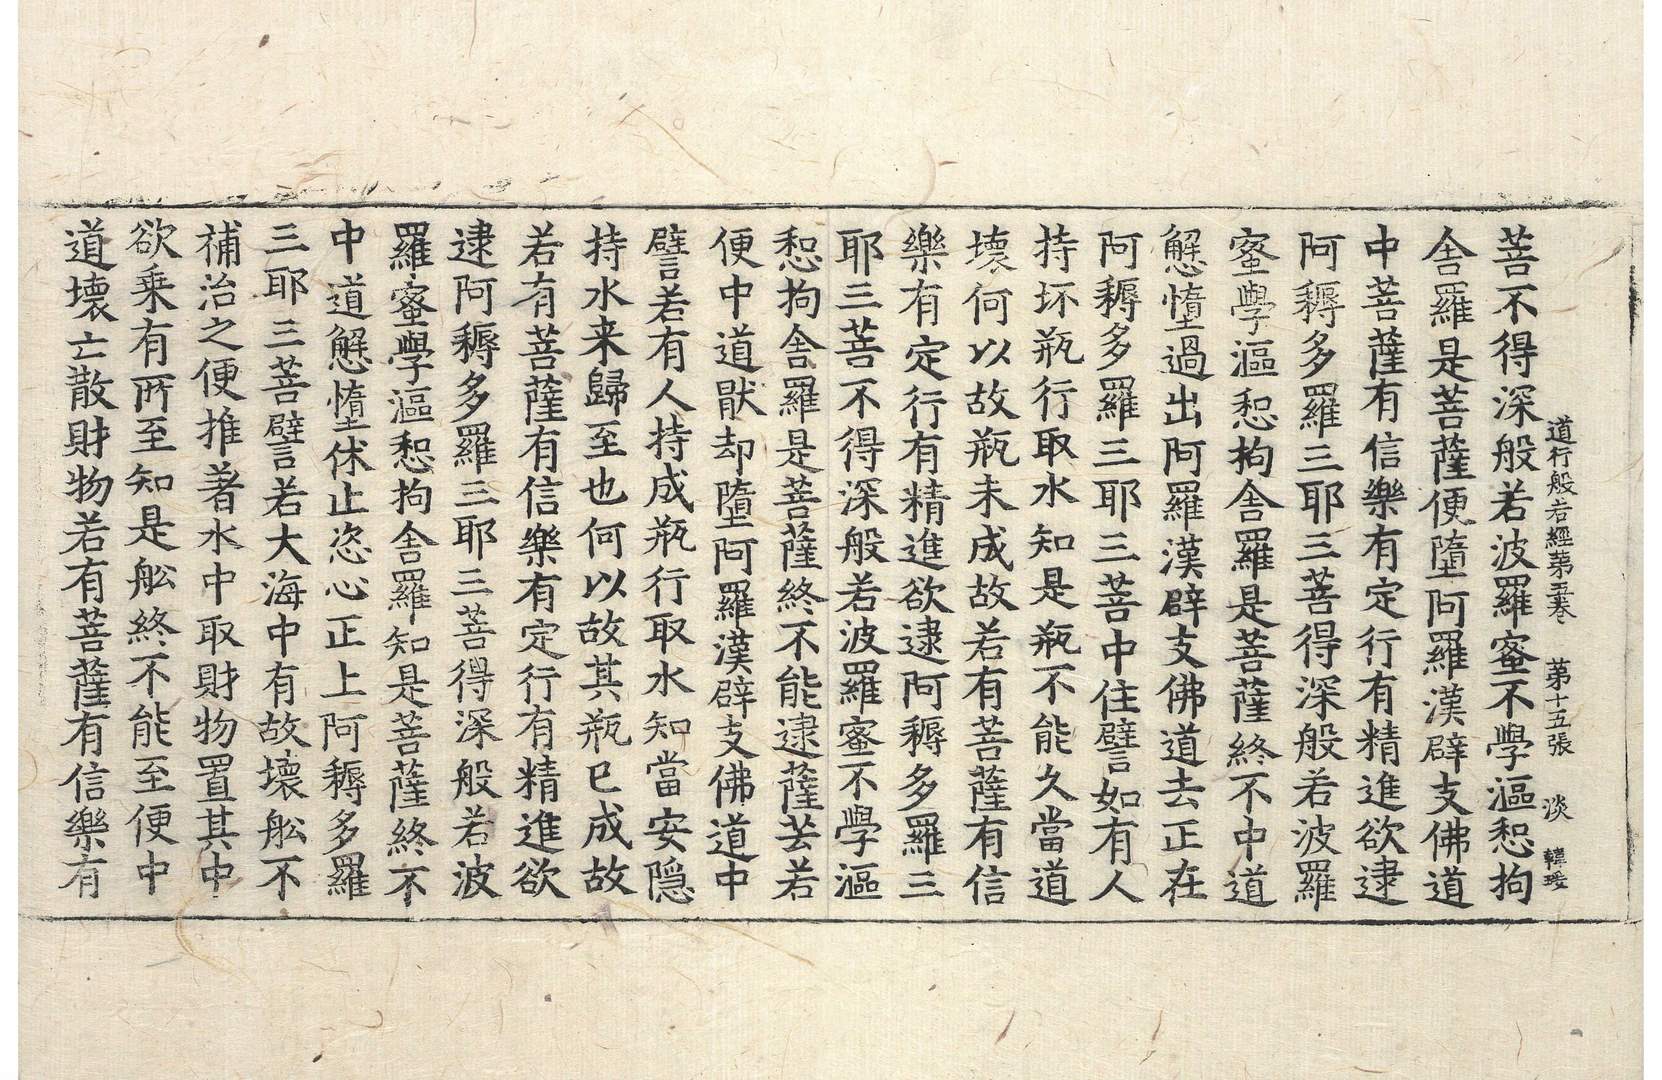 道行般若經第五卷 第十五張 淡 韓
菩不得深般若波羅蜜不學漚惒拘
舍羅是菩薩便墮阿羅漢辟支佛道
中菩薩有信樂有定行有精進欲逮
阿耨多羅三耶三菩得深般若波羅
蜜學漚惒拘舍羅是菩薩終不中道
懈憜過出阿羅漢辟支佛道去正在
阿耨多羅三耶三菩中住譬如有人
持坏瓶行取水知是瓶不能久當道
壞何以故瓶未成故若有菩薩有信
樂有定行有精進欲逮阿耨多羅三
耶三菩不得深般若波羅蜜不學漚
惒拘舍羅是菩薩終不能逮薩芸若
便中道猒却墮阿羅漢辟支佛道中
譬若有人持成瓶行取水知當安隱
持水来歸至也何以故其瓶已成故
若有菩薩有信樂有定行有精進欲
逮阿耨多羅三耶三菩得深般若波
羅蜜學漚惒拘舍羅知是菩薩終不
中道懈憜休止恣心正上阿耨多羅
三耶三菩譬若大海中有故壞舩不
補治之便推著水中取財物置其中
欲乗有所至知是舩終不能至便中
道壞亡散財物若有菩薩有信樂有